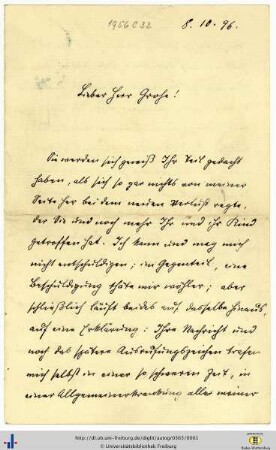 1956 C 32
8. 10. 96.
Lieber Herr Grohe!
Sie werden sich gewiß Ihr Teil gedacht
haben, als sich so gar nichts von meiner
Seite her bei dem neuen Verlust regte,
der Sie und noch mehr Ihr und ihr Kind
getroffen hat. Ich kann und mag mich
nicht entschuldigen; im Gegenteil, eine
Beschuldigung thäte mir wöhler; aber
schließlich läuft beides auf dasselbe hinaus,
auf eine Erklärung: Ihre Nachricht und
noch das spätere Ausrufungszeichen trafen
mich selbst in einer so schweren Zeit, in
einer Allgemeinerkrankung alles meiner
http://dl.ub.uni-freiburg.de/diglit/autogr0565/0001
© Universitätsbibliothek Freiburg